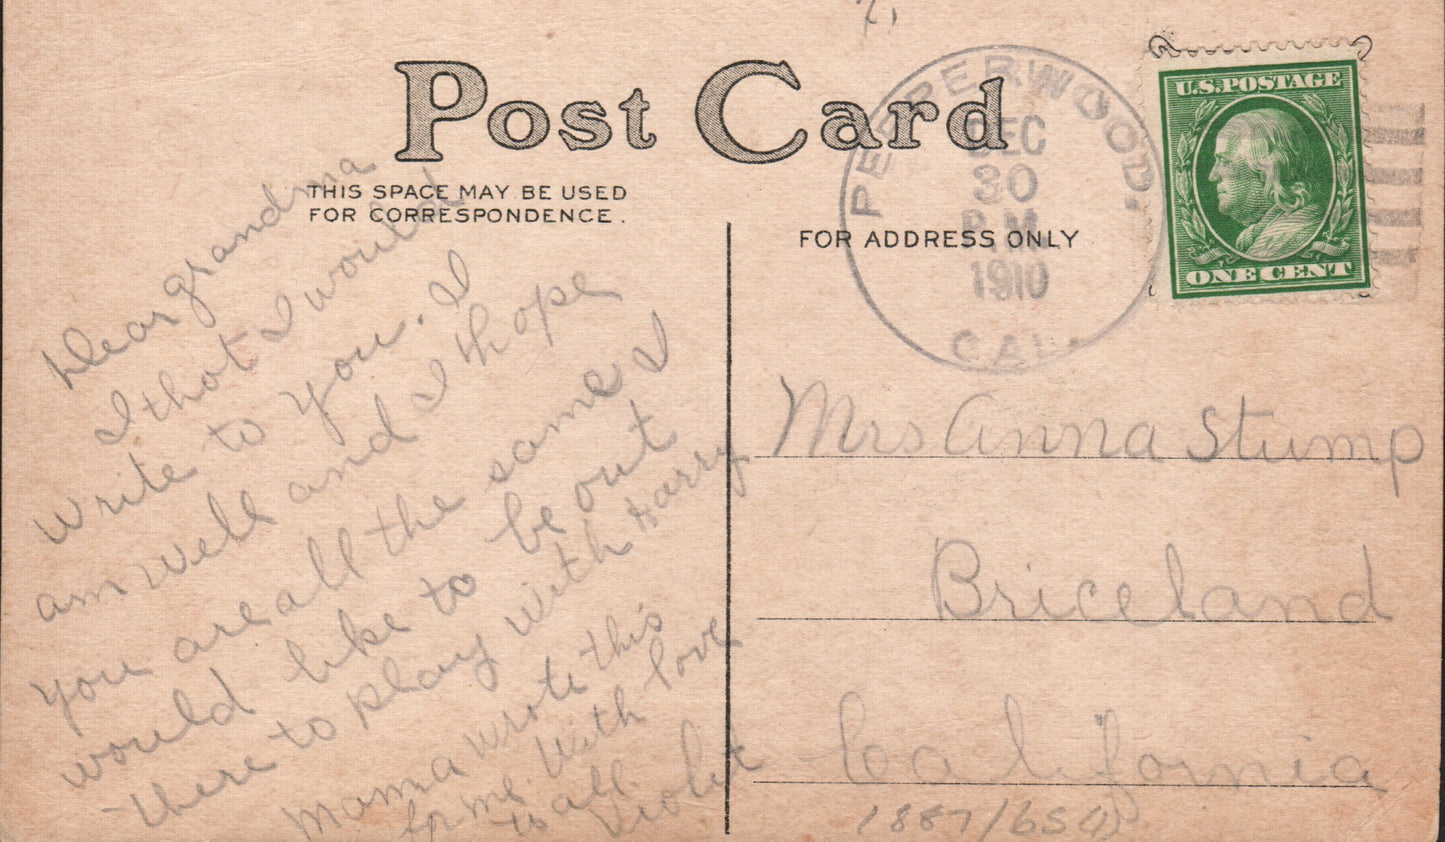 Post Card
THIS SPACE MAY BE USED
FOR CORRESPONDENCE.
FOR ADDRESS ONLY
PEPPERWOOD,
DEC
30
P.M.
1910
CAL.
U.S.POSTAGE
ONE CENT
Dear grandma
I thot I would
write to you. I
am well and I hope
you are all the same I
would like to be out
there to play with Harry
Mama wrote this
for me. With love
to all.
Violet
Mrs Anna Stump
Briceland
California
1887/65